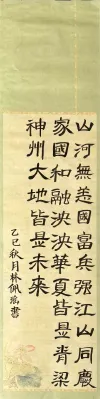 山河無恙國富兵强江山同慶
家國和融泱泱華夏皆是脊梁
神州大地皆是未來
乙巳秋月林佩瑶書